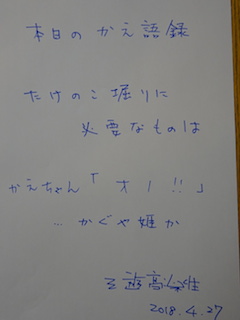 本日のかえ語録
たけのこ掘りに
必要なものは
かえちゃん「オノ!!」
…かぐや姫か
2018.4.27